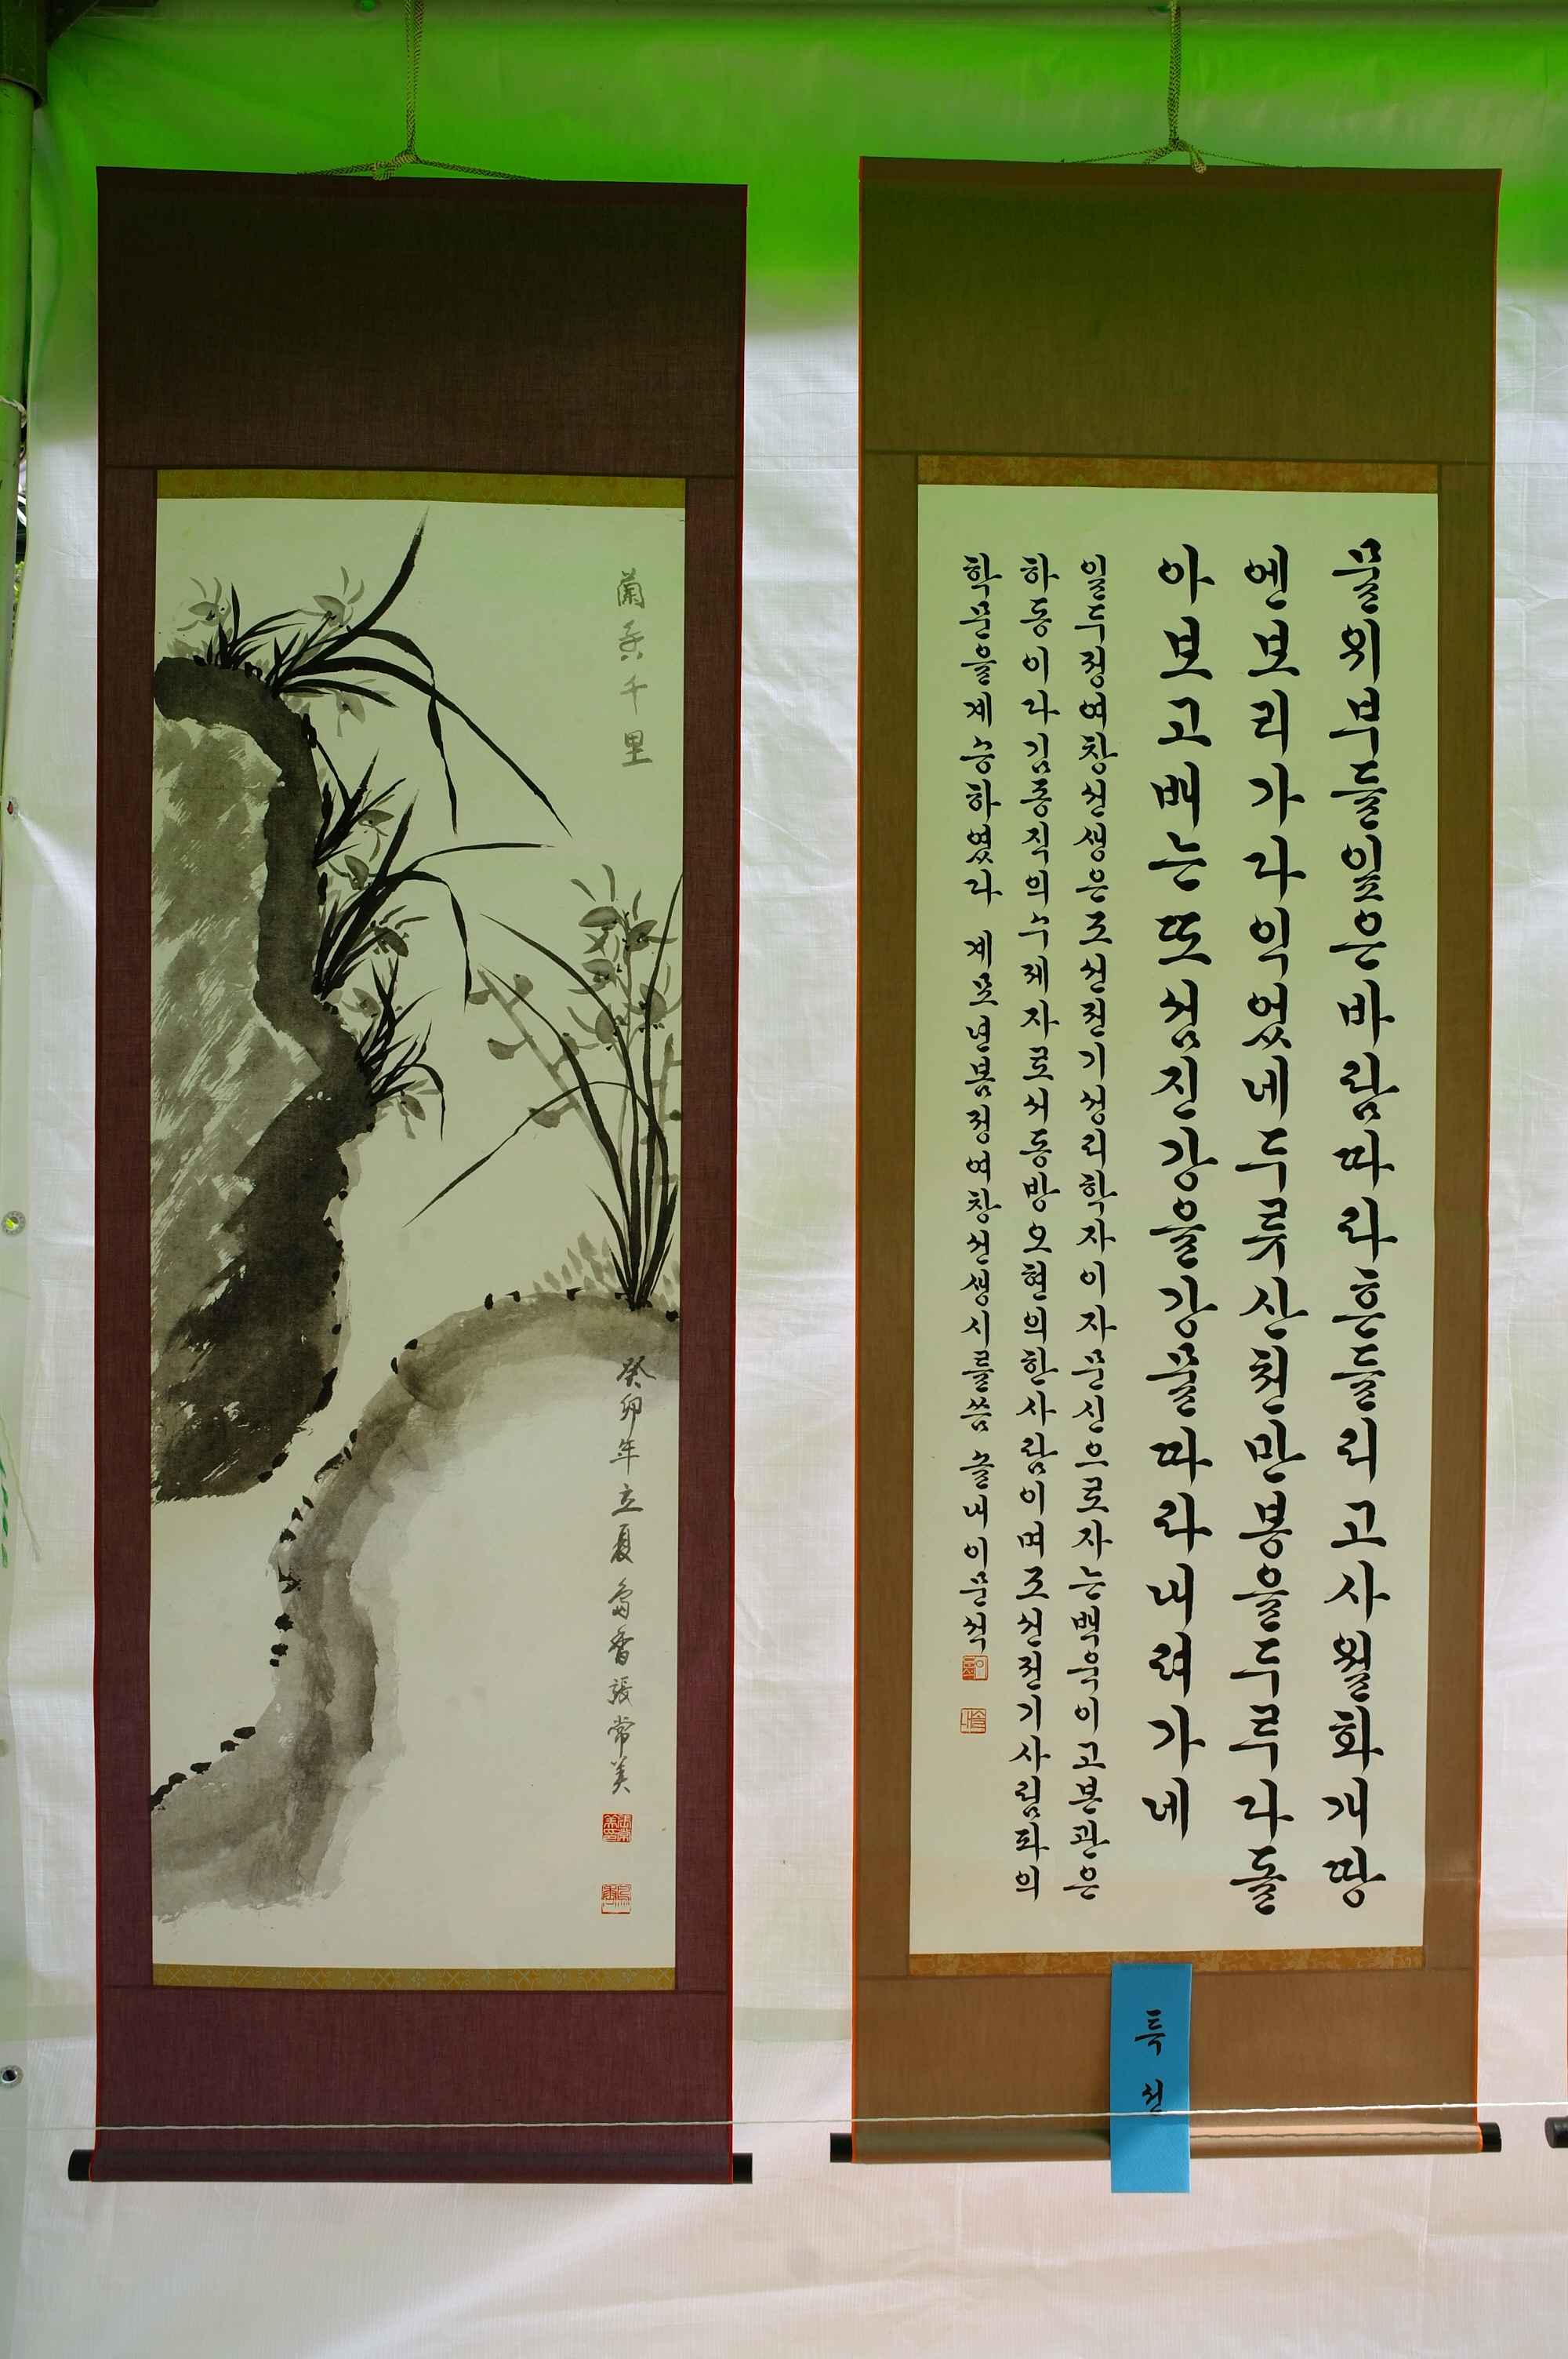 蘭香千里
癸卯年立夏 香張常美
물위부들잎은바람따라흔들리고사월화개땅
엔보리가다익었네두류산천만봉을두루다돌
아보고배는또섬진강을강물따라내려가네
일두정여창선생은조선전기성리학자이자문신으로자는백욱이고본관은
하동이라김종직의수제자로서동방오현의한사람이며조선전기사림파의
학문을계승하였다 계묘년봄정여창선생시를씀 솔내이문석
특선